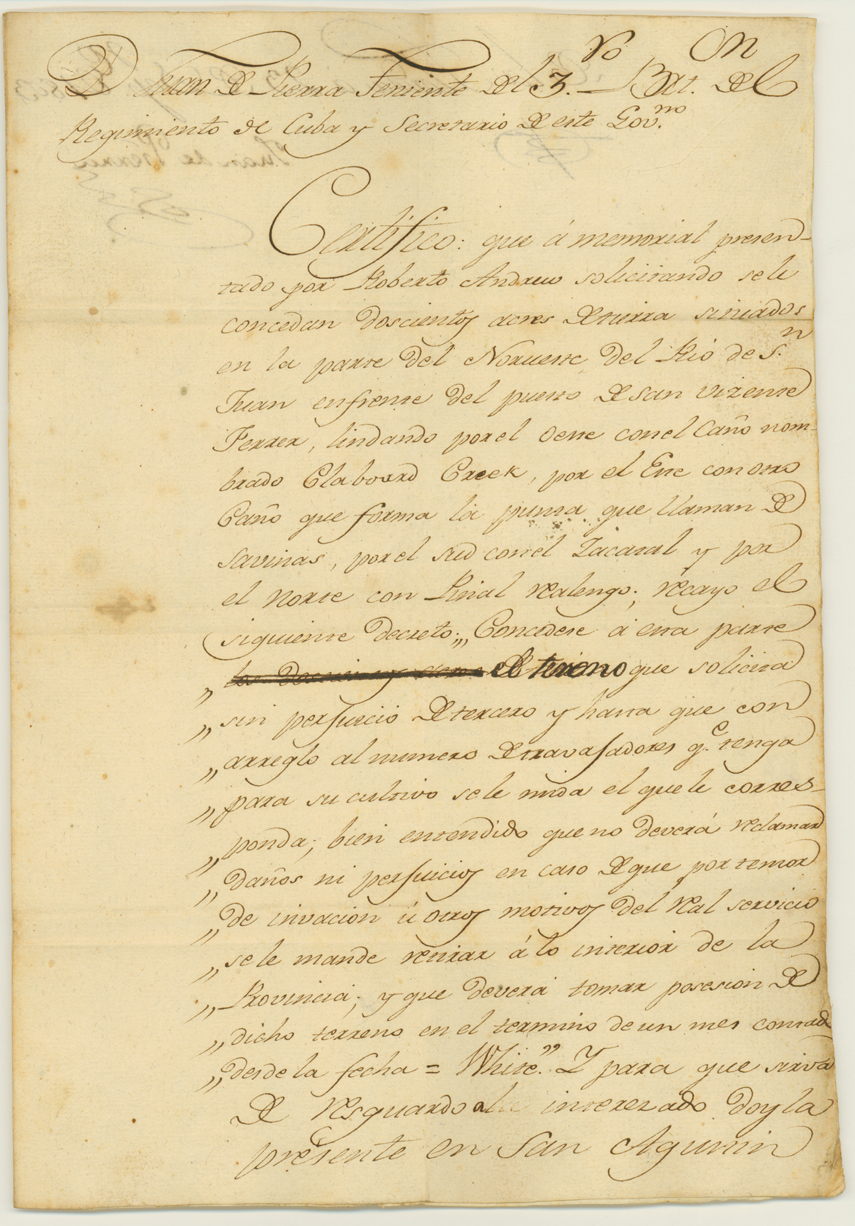 Dn Juan de Pierra Teniente del 3.ro Bat.on del
Regimiento de Cuba y Secretario de este Gov.no
Certifico: que á memorial presen-
tado por Roberto Andrew solicitando sele
concedan doscientos acres de tierra situados
en la parte del Norueste del Rió de S.n
Juan enfrente del puesto de san Vizente
Ferrer, lindando por el Oeste con el Caño nom-
brado Claboard Creek, por el Este con otro
Caño que forma la punta que llaman de
Savinas, por el sud con el Zacatal y por
el Norte con Piñal realengo; recayo el
siguiente decreto; „Concedese á esta parte
„ los doscientos acres el terreno que solicita
„ sin perjuicio de tercero y hasta que con
„ arreglo al numero de travajadores q.e tenga
„ para su cultivo sele mida el que le corres-
„ ponda; bien entendido que no deverá reclamar
„ daños ni perjuicios en caso de que por temor
„ de invacion ú otros motivos del real servicio
„ sele mande retirar á lo interior de la
„ Provincia; y que deverá tomar posesion de
„ dicho terreno en el termino de un mes contado
„ desde la fecha = White.” Y para que sirva
de resguardo al interezado doy la
presente en San Agustin